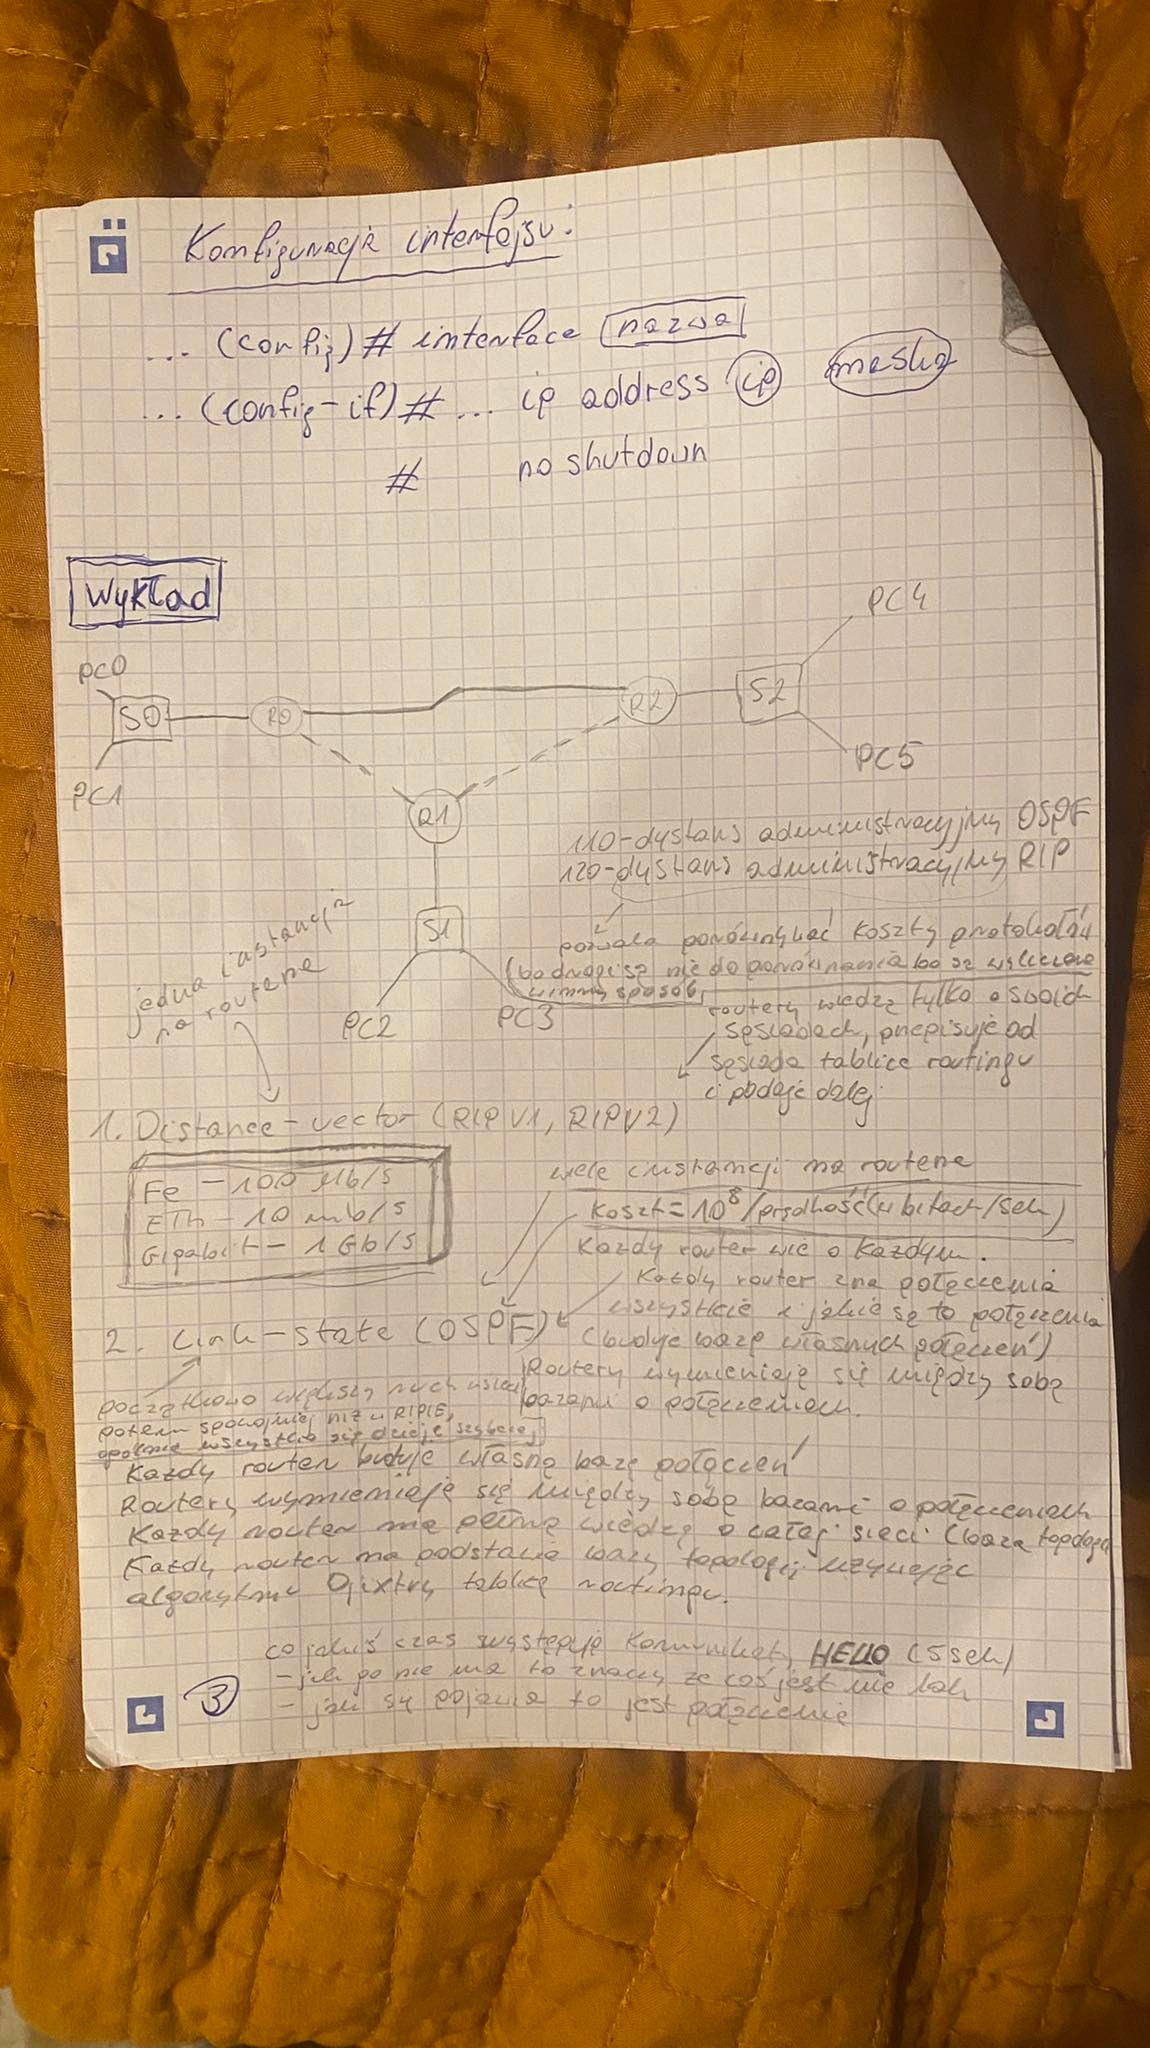 Konfiguracja interfejsu:
... (config) # interface nazwa
... (config-if) # ... ip address ip maska
# no shutdown
Wykład
PC4
PC0
S0
R0
R2
S2
PC5
PC1
R1
110-dystans administracyjny OSPF
120-dystans administracyjny RIP
S1
pozwala porównywać koszty protokołów
(bo drogi są nie do porównania bo są wyliczone
w inny sposób)
jedna instancja
na routerze
PC2
PC3
routery wiedzą tylko o swoich
sąsiadach, przepisuje od
sąsiada tablice routingu
i podaje dalej
1. Distance-vector (RIP V1, RIP V2)
Fe - 100 Mb/s
ETh - 10 mb/s
Gigabit - 1 Gb/s
wiele instancji na routerze
koszt = 10⁸/prędkość (w bitach/sek)
Każdy router wie o każdym.
Każdy router zna połączenia
wszystkie i jakie są to połączenia
2. Link-state (OSPF)
(buduje bazę własnych połączeń)
Routery wymieniają się między sobą
bazami o połączeniach.
początkowo większy ruch w sieci
potem spokojniej niż w RIPIE,
wszystko się dzieje szybciej
Każdy router buduje własną bazę połączeń
Routery wymieniają się między sobą bazami o połączeniach
Każdy router ma pełną wiedzę o całej sieci (baza topologii
Każdy router na podstawie bazy topologii używając
algorytmu Djixtry tablicę routingu.
co jakiś czas występuje komunikat HELLO (5 sek)
- jak go nie ma to znaczy że coś jest nie tak
- jak się pojawia to jest połączenie
3